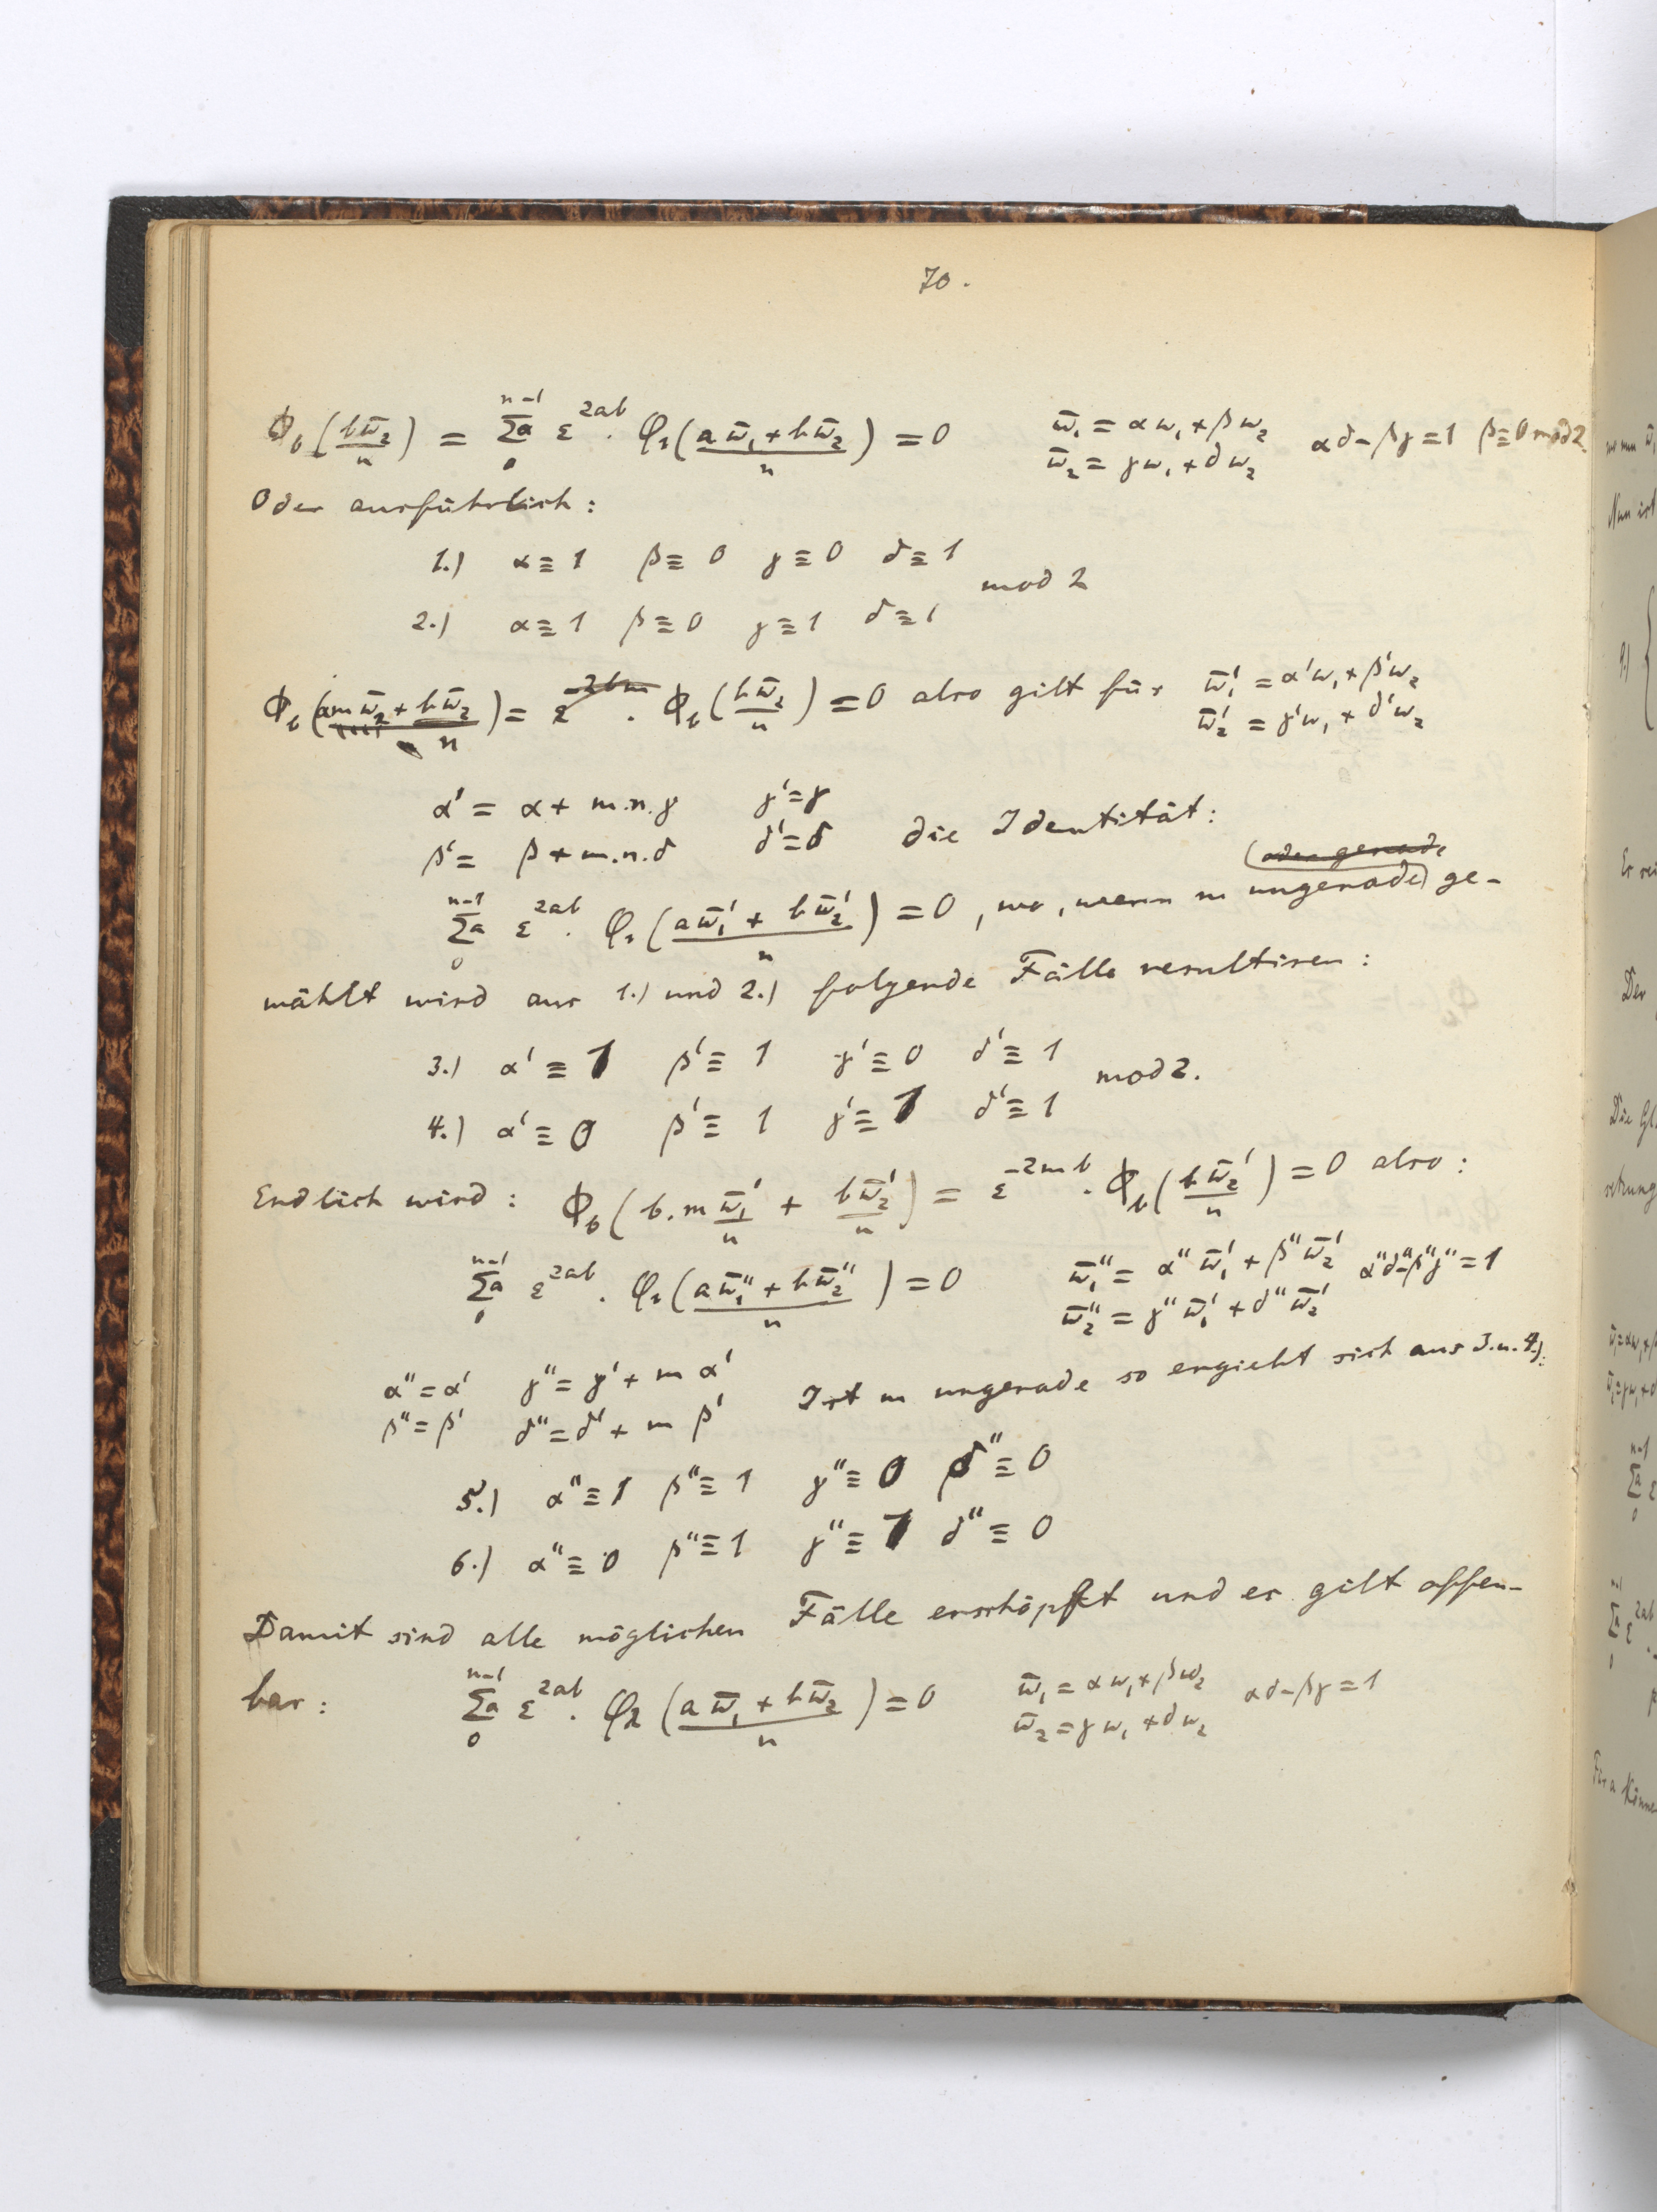 70.
Φ_b(bω̄₂/n) = Σa₀ⁿ⁻¹ ε^{2ab} · φ₁((aω̄₁+bω̄₂)/n) = 0   ω̄₁ = αω₁+βω₂   αδ-βγ=1   β≡0 mod 2.
ω̄₂ = γω₁+δω₂
Oder ausführlich:
1.) α≡1 β≡0 γ≡0 δ≡1
mod 2
2.) α≡1 β≡0 γ≡1 δ≡1
= 0 also gilt für ω̄₁' = α'ω₁+β'ω₂
ω̄₂' = γ'ω₁+δ'ω₂
α' = α + m.n.γ γ'=γ
β' = β + m.n.δ δ'=δ die Identität:
(oder gerade
Σa₀ⁿ⁻¹ ε^{2ab} · φ₁((aω̄₁'+bω̄₂')/n) = 0, wo, wenn m ungerade) ge-
wählt wird aus 1.) und 2.) folgende Fälle resultiren:
3.) α'≡1 β'≡1 γ'≡0 δ'≡1
mod 2.
4.) α'≡0 β'≡1 γ'≡1 δ'≡1
Endlich wird: Φ_b(b.m ω̄₁'/n + bω̄₂'/n) = ε^{-2mb} · Φ_b(bω̄₂'/n) = 0 also:
Σa₀ⁿ⁻¹ ε^{2ab} · φ₁((aω̄₁''+bω̄₂'')/n) = 0   ω̄₁'' = α''ω̄₁'+β''ω̄₂'   α''δ''-β''γ''=1
ω̄₂'' = γ''ω̄₁'+δ''ω̄₂'
α''=α' γ''=γ'+mα'
β''=β' δ''=δ'+mβ' Ist m ungerade so ergiebt sich aus 3.u.4.):
5.) α''≡1 β''≡1 γ''≡0 δ''≡0
6.) α''≡0 β''≡1 γ''≡1 δ''≡0
Damit sind alle möglichen Fälle erschöpft und es gilt offen-
bar: Σa₀ⁿ⁻¹ ε^{2ab} · φ₂((aω̄₁+bω̄₂)/n) = 0   ω̄₁ = αω₁+βω₂   αδ-βγ=1
ω̄₂ = γω₁+δω₂